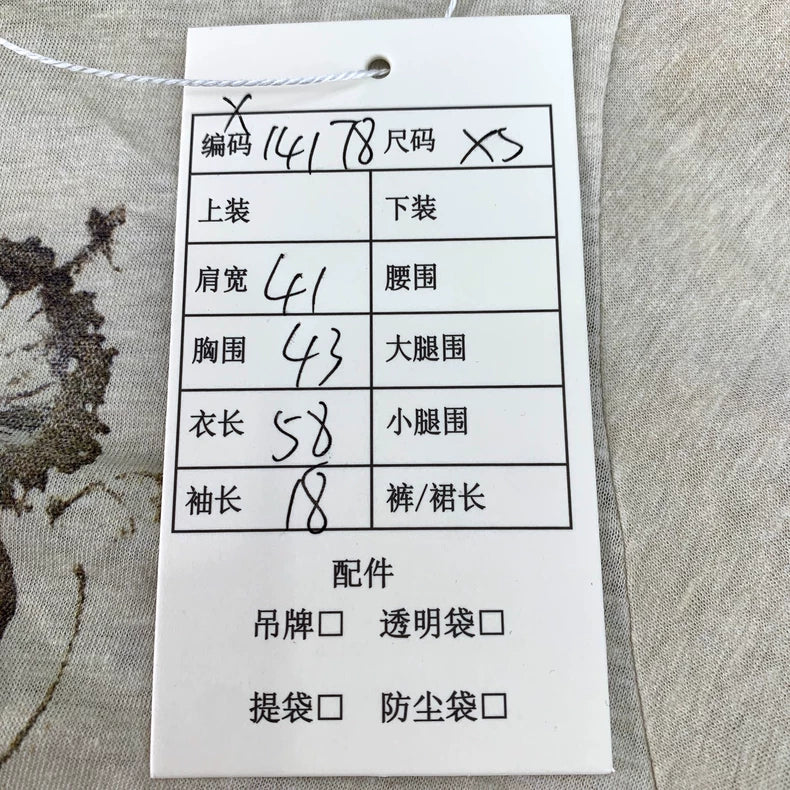 X
编码 14178 尺码 XS
上装 下装
肩宽 41 腰围
胸围 43 大腿围
衣长 58 小腿围
袖长 18 裤/裙长
配件
吊牌□ 透明袋□
提袋□ 防尘袋□